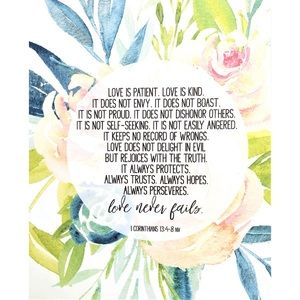 LOVE IS PATIENT. LOVE IS KIND.
IT DOES NOT ENVY. IT DOES NOT BOAST.
IT IS NOT PROUD. IT DOES NOT DISHONOR OTHERS.
IT IS NOT SELF-SEEKING. IT IS NOT EASILY ANGERED.
IT KEEPS NO RECORD OF WRONGS.
LOVE DOES NOT DELIGHT IN EVIL
BUT REJOICES WITH THE TRUTH.
IT ALWAYS PROTECTS.
ALWAYS TRUSTS. ALWAYS HOPES.
ALWAYS PERSEVERES.
love never fails.
1 CORINTHIANS 13:4-8 NIV